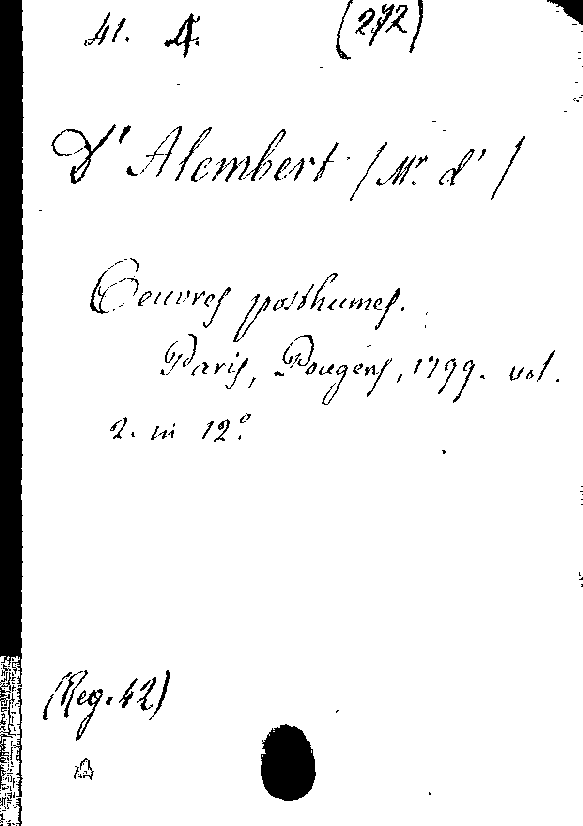 41. A. (272)
D'Alembert (Mr. d')
Oeuvres posthumes.
Paris, Pougens, 1799. vol.
2. in 12°.
(Reg. 42)